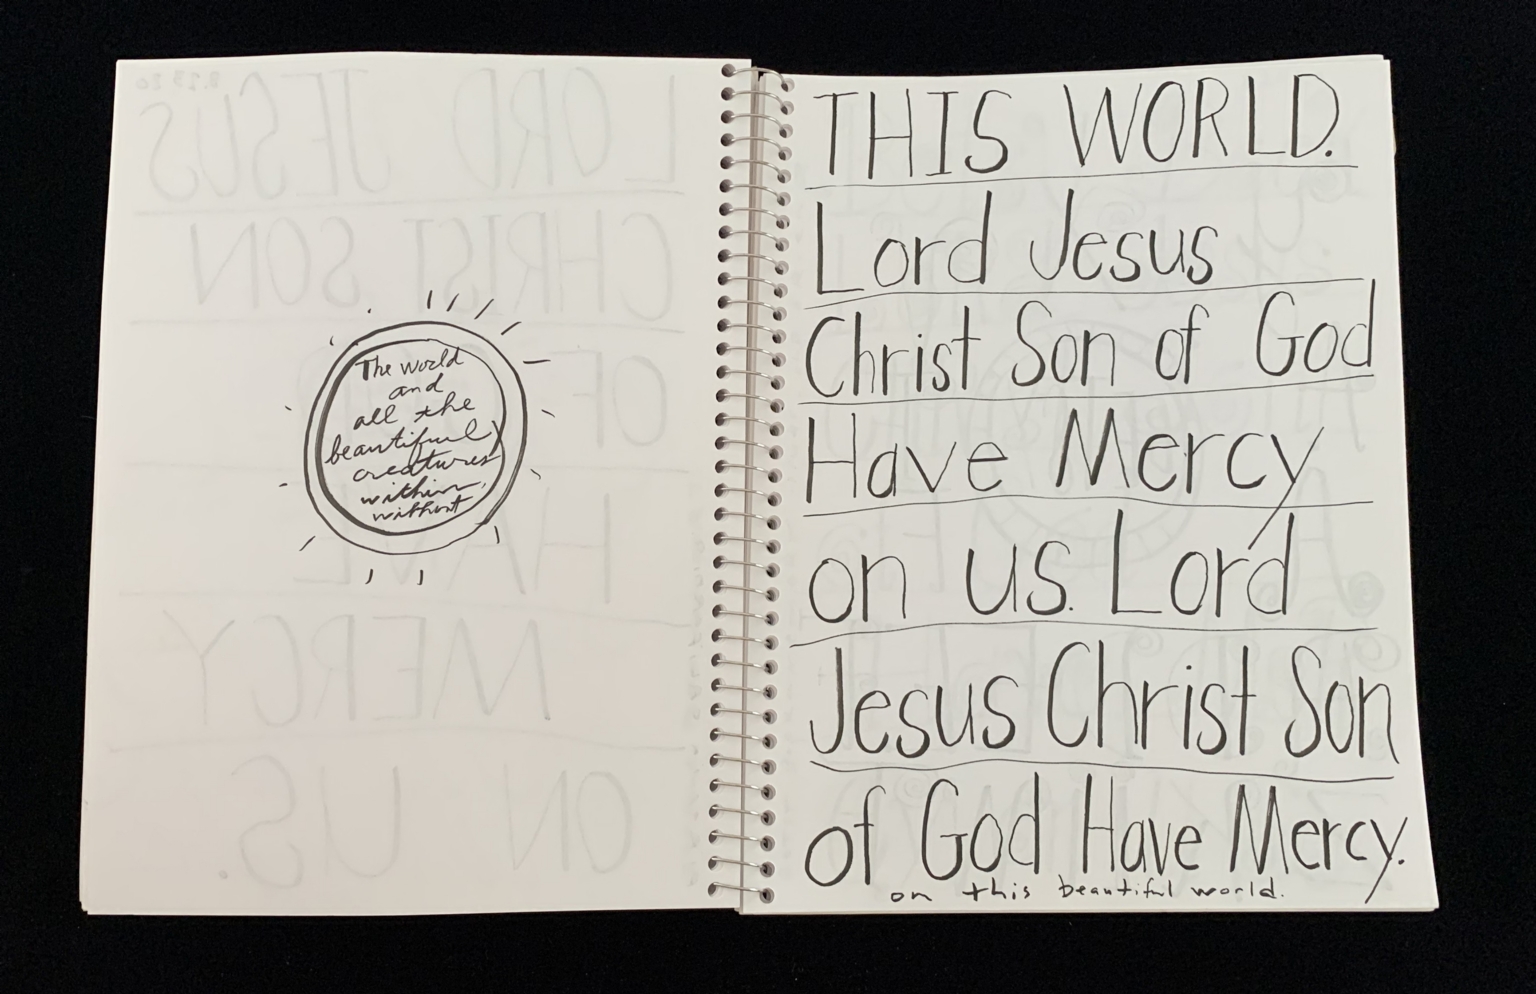 The world
and
all the
beautiful
creatures
within,
without
THIS WORLD.
Lord Jesus
Christ Son of God
Have Mercy
on us. Lord
Jesus Christ Son
of God Have Mercy.
on this beautiful world.